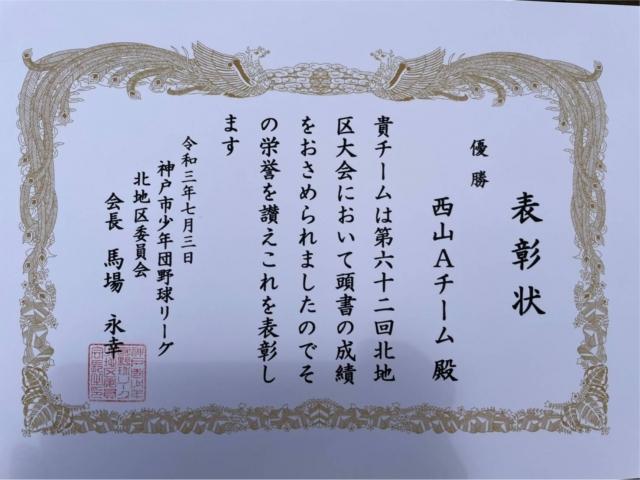 表彰状
優勝
西山Aチーム殿
貴チームは第六十二回北地
区大会において頭書の成績
をおさめられましたのでそ
の栄誉を讃えこれを表彰し
ます
令和三年七月三日
神戸市少年団野球リーグ
北地区委員会
会長 馬場 永幸